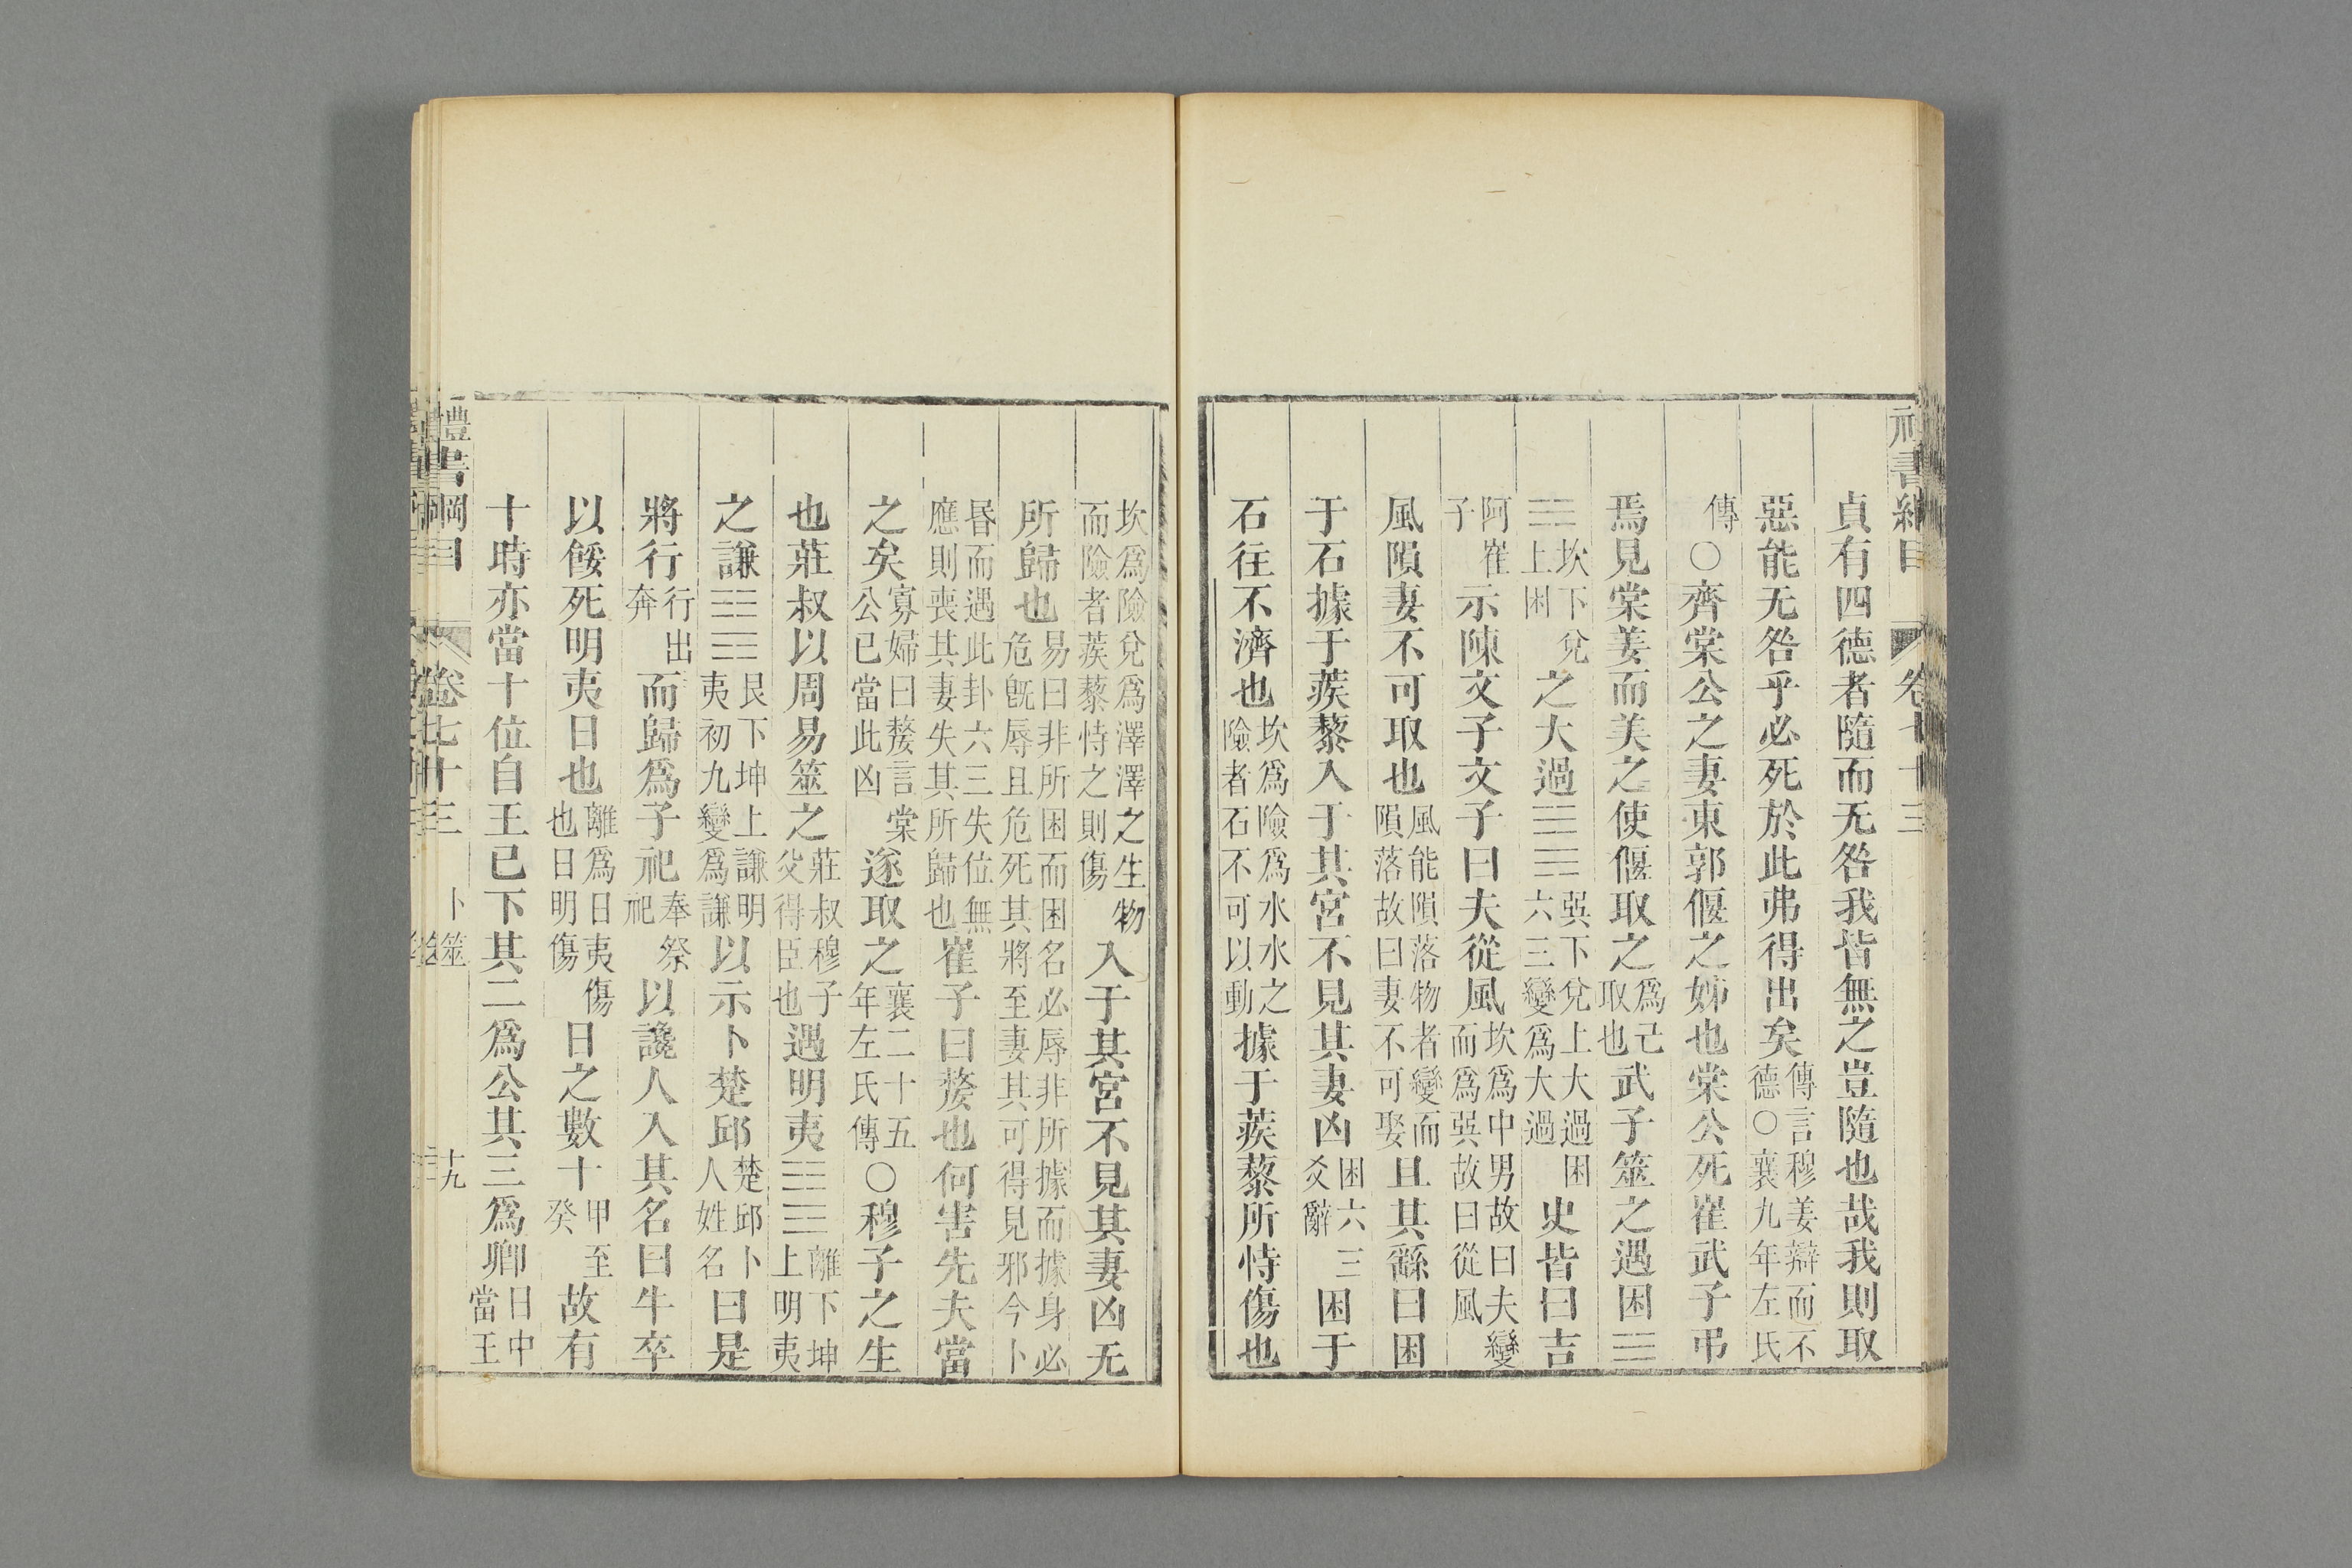 禮書綱目 卷七十三
貞有四德者隨而无咎我皆無之豈隨也哉我則取
惡能无咎乎必死於此弗得出矣傳言穆姜辯而不德○襄九年左氏
傳○齊棠公之妻東郭偃之姊也棠公死崔武子弔
焉見棠姜而美之使偃取之爲己取也武子筮之遇困☵
☱坎下兌上困之大過☴☱巽下兌上大過困六三變爲大過史皆曰吉
阿崔子示陳文子文子曰夫從風坎爲中男故曰夫變而爲巽故曰從風
風隕妻不可取也風能隕落物者變而隕落故曰妻不可娶且其繇曰困
于石據于蒺藜入于其宮不見其妻凶困六三爻辭困于
石往不濟也坎爲險爲水水之險者石不可以動據于蒺藜所恃傷也
坎爲險兌爲澤澤之生物而險者蒺藜恃之則傷入于其宮不見其妻凶无
所歸也易曰非所困而困名必辱非所據而據身必危旣辱且危死其將至妻其可得見邪今卜
昏而遇此卦六三失位無應則喪其妻失其所歸也崔子曰嫠也何害先夫當
之矣寡婦曰嫠言棠公已當此凶遂取之襄二十五年左氏傳○穆子之生
也莊叔以周易筮之莊叔穆子父得臣也遇明夷☲☷離下坤上明夷
之謙☶☷艮下坤上謙明夷初九變爲謙以示卜楚邱楚邱卜人姓名曰是
將行行出奔而歸爲子祀奉祭祀以讒人入其名曰牛卒
以餒死明夷日也離爲日夷傷也日明傷日之數十甲至癸故有
十時亦當十位自王已下其二爲公其三爲卿日中當王
禮書綱目 卷七十三 卜筮 十九